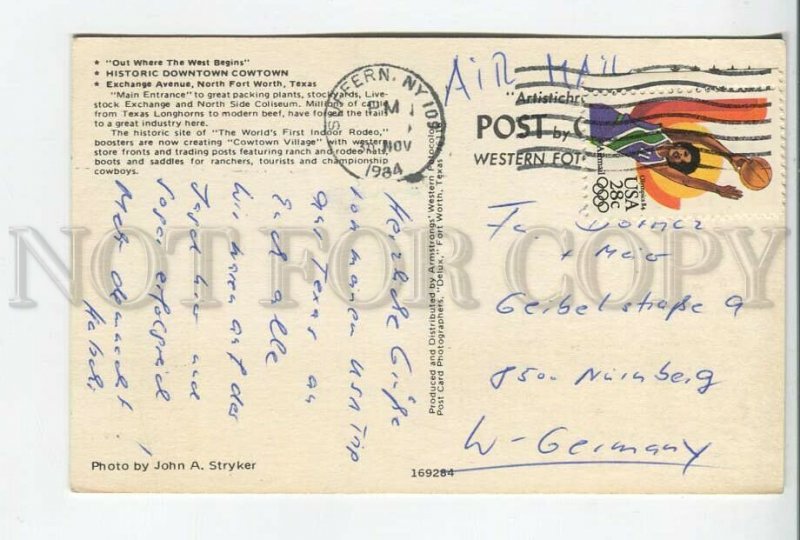 ★ "Out Where The West Begins"
★ HISTORIC DOWNTOWN COWTOWN
★ Exchange Avenue, North Fort Worth, Texas
"Main Entrance" to great packing plants, stockyards, Live-
stock Exchange and North Side Coliseum. Millions of cattle
from Texas Longhorns to modern beef, have found the trails
to a great industry here.
The historic site of "The World's First Indoor Rodeo,"
boosters are now creating "Cowtown Village" with western
store fronts and trading posts featuring ranch and rodeo hats,
boots and saddles for ranchers, tourists and championship
cowboys.
Herzliche Grüße
von meinem USA Trip
aus Texas an
Euch alle
Wir waren auf der
Jagd hier und
sogar erfolgreich
!
Photo by John A. Stryker
Produced and Distributed by Armstrongs' Western Fotocolor
Post Card Photographers, "Delux," Fort Worth, Texas
169284
SUFFERN, NY
PM
NOV
1984
AIR MAIL
"Artistichr
POST by
WESTERN FOT
Olympics 84
Airmail
USA
28c
Fa Dorner
+ Maier
Geibelstraße 9
8500 Nürnberg
W-Germany
NOT FOR COPY